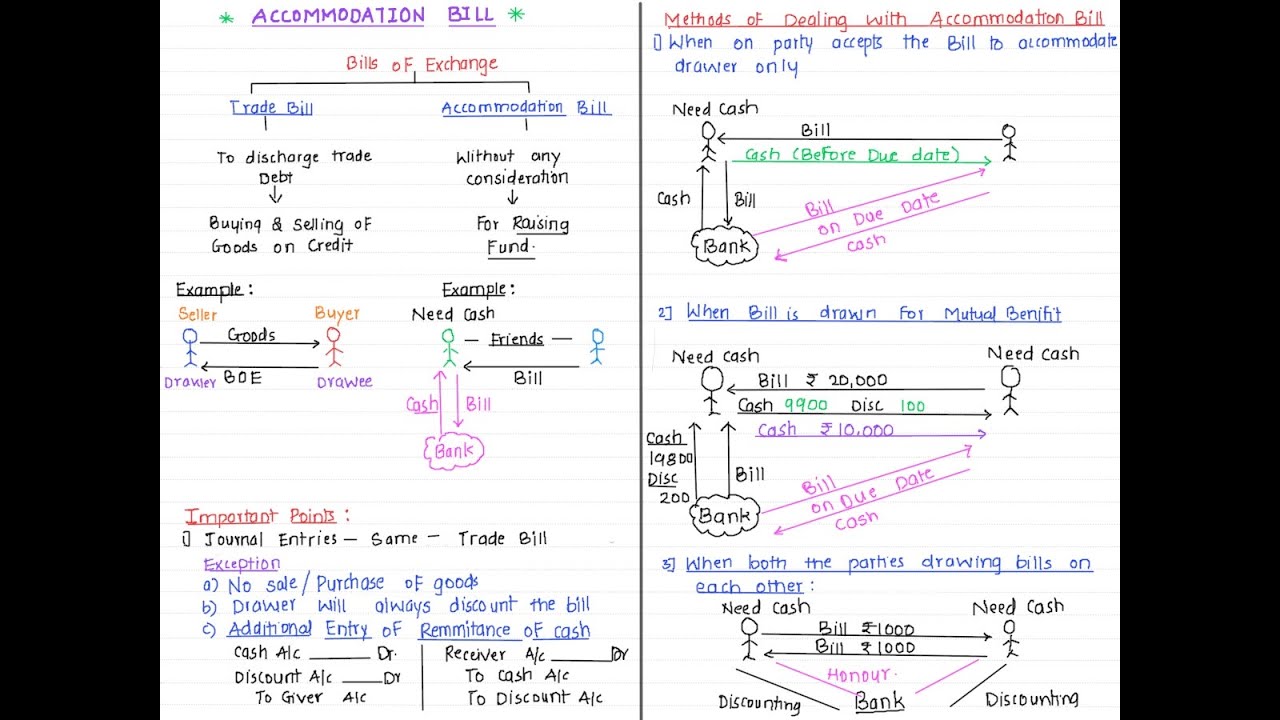 * ACCOMMODATION BILL *
Bills of Exchange
Trade Bill
Accommodation Bill
To discharge trade
Debt
Buying & Selling of
Goods on Credit
Without any
consideration
For Raising
Fund.
Example :
Seller
Buyer
Goods
BOE
Drawer
Drawee
Example :
Need Cash
— Friends —
Bill
Cash
Bill
Bank
Important Points :
1) Journal Entries — Same — Trade Bill
Exception
a) No sale / Purchase of goods
b) Drawer will always discount the bill
c) Additional Entry of Remmitance of cash
Cash A/c ______ Dr.
Discount A/c ____ Dr
To Giver A/c
Receiver A/c ______ Dr
To Cash A/c
To Discount A/c
Methods of Dealing with Accommodation Bill
1) When on party accepts the Bill to accommodate
drawer only
Need Cash
Bill
Cash (Before Due date)
Cash
Bill
Bill
on Due Date
Cash
Bank
2] When Bill is drawn For Mutual Benifit
Need Cash
Need Cash
Bill ₹ 20,000
Cash 9900 Disc 100
Cash ₹10,000
Cash
19800
Disc
200
Bill
Bill
on Due Date
Cash
Bank
3] When both the parties drawing bills on
each other :
Need Cash
Need Cash
Bill ₹1000
Bill ₹1000
Honour.
Discounting
Bank
Discounting